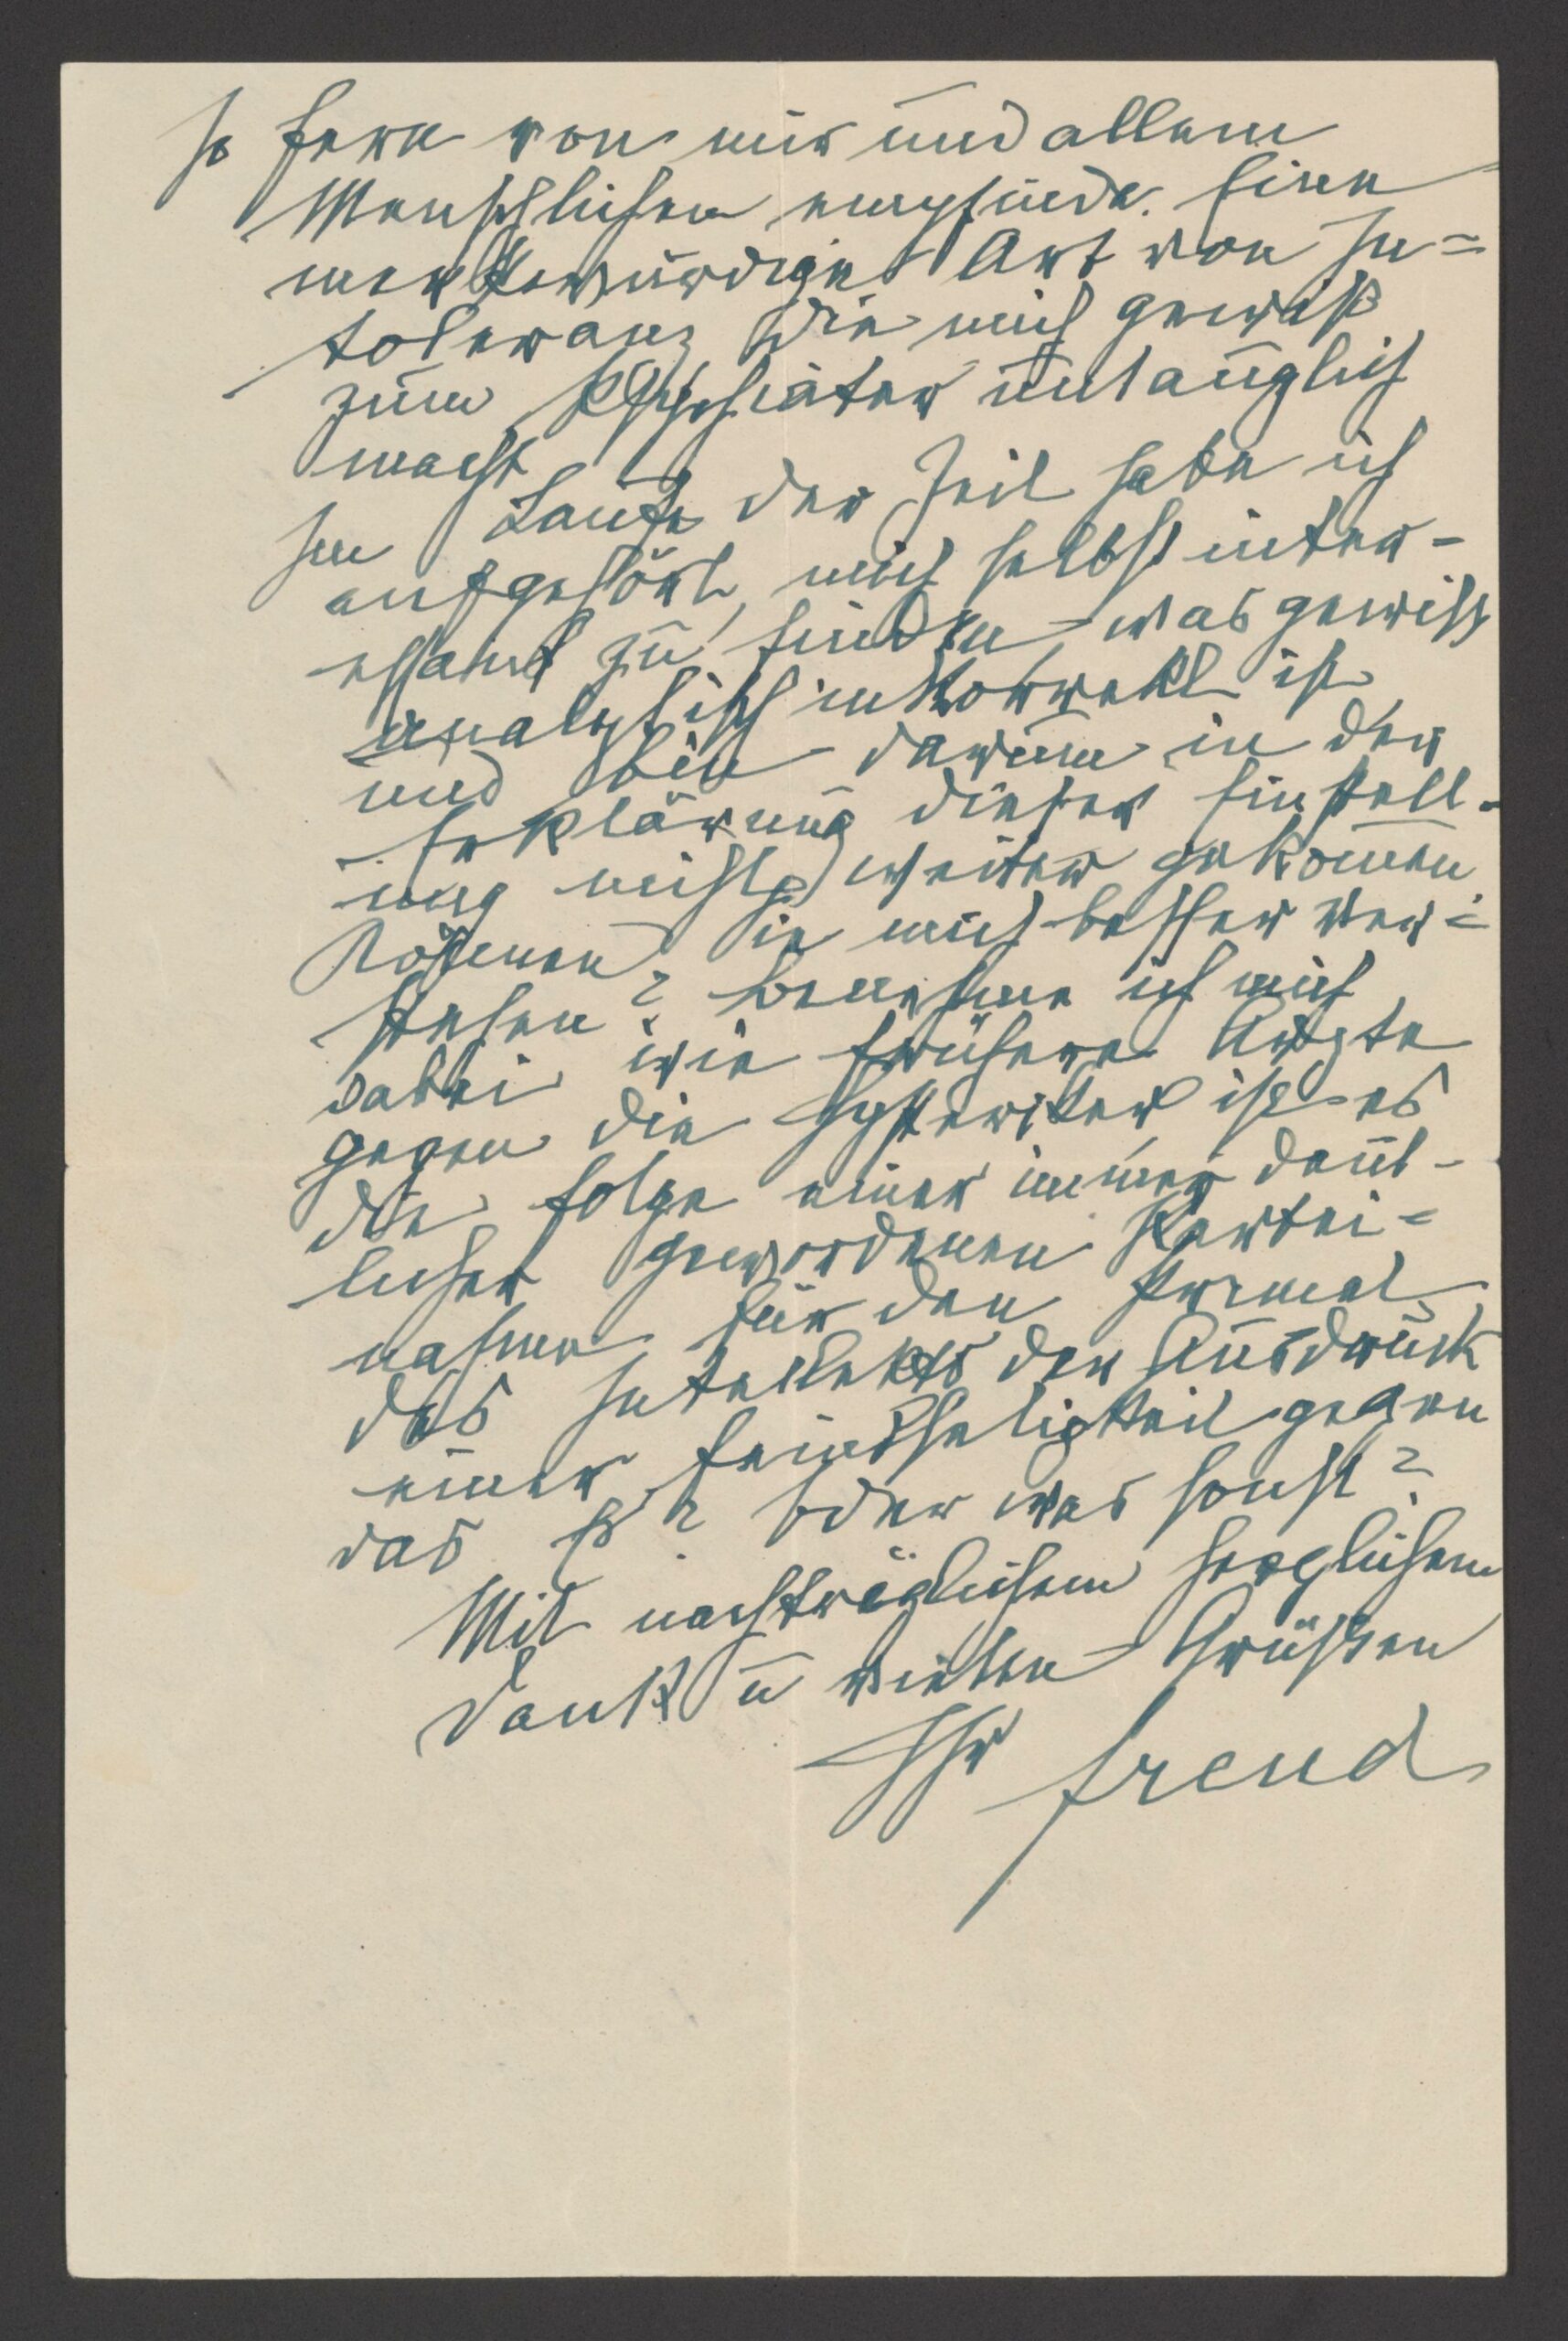 so fern von mir und allem
Menschlichen empfinde. Eine
merkwürdige Art von In-
toleranz, die mich gewiß
zum Psychiater untauglich
macht.
Im Laufe der Zeit habe ich
aufgehört, mich selbst inter-
essant zu finden, was gewiss
analytisch inkorrekt ist
und bin darum in der
Erklärung dieser Einstell-
ung nicht weiter gekommen.
Können Sie mich besser ver-
stehen? Benehme ich mich
dabei wie frühere Ärzte
gegen die Hysteriker, ist es
die Folge einer immer deut-
licher gewordenen Partei-
nahme für den Primat
des Intellekts, der Ausdruck
einer Feindseligkeit gegen
das Es? Oder was sonst?
Mit nachträglichem herzlichem
Dank u vielen Grüßen
Ihr Freud